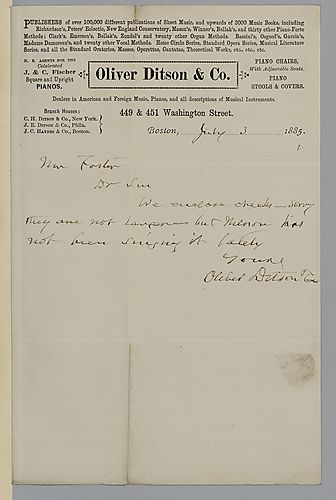 PUBLISHERS of over 100,000 different publications of Sheet Music, and upwards of 2000 Music Books, including
Richardson's, Peters' Eclectic, New England Conservatory, Mason's, Winner's, Bellak's, and thirty other Piano-Forte
Methods; Clark's, Emerson's, Bellak's, Zundel's and twenty other Organ Methods. Bassini's, Osgood's, Garcia's,
Madame Damoreau's, and twenty other Vocal Methods. Home Circle Series, Standard Opera Series, Musical Literature
Series, and all the Standard Oratorios, Masses, Operettas, Cantatas, Theoretical Works, etc., etc. etc.
N. E. AGENTS FOR THE
Celebrated
J. & C. Fischer
Square and Upright
PIANOS.
Oliver Ditson & Co.
PIANO CHAIRS,
With Adjustable Seats.
PIANO
STOOLS & COVERS.
Dealers in American and Foreign Music, Pianos, and all descriptions of Musical Instruments.
449 & 451 Washington Street.
Branch Houses:
C. H. DITSON & CO., New York.
J. E. DITSON & CO., Phila.
J. C. HAYNES & CO., Boston.
Boston, July 3 1885.
Foster
Dr Sir
We enclose check - Sorry
they are not larger - but has
not been singing it lately
Yours
Oliver Ditson & Co